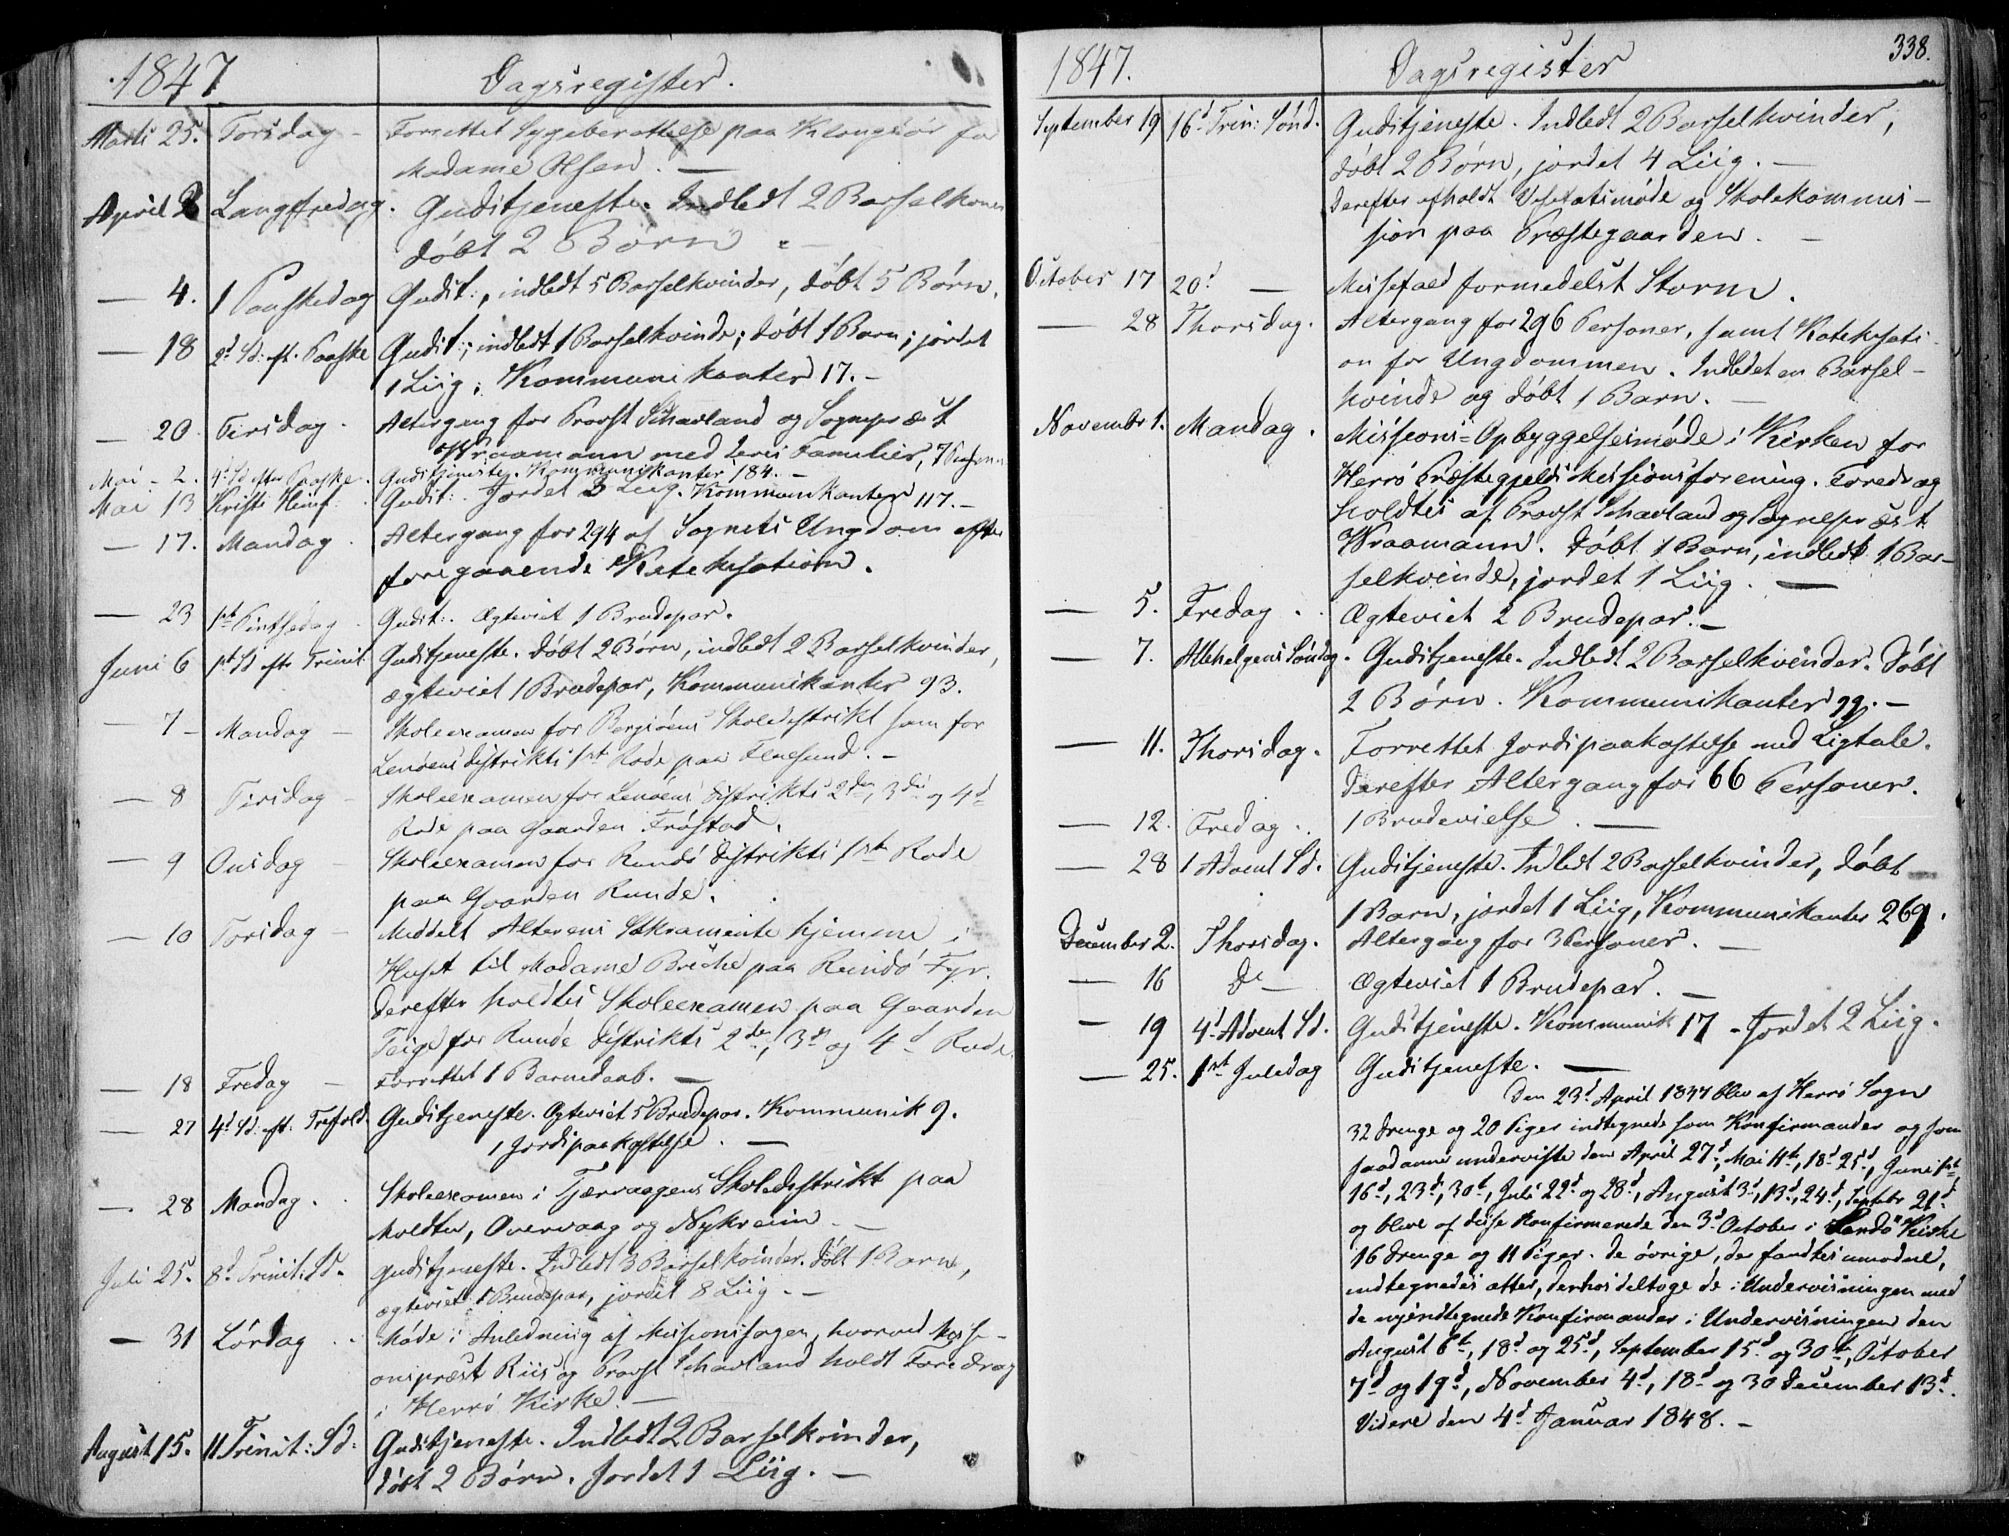 1847
Dagsregister.
Marts 25. Torsdag - Forrettet Sygeberettelse paa
Madame Olsen. —
April 2 Langfredag. Gudstjeneste. Indledt 2 Barselkoner
døbt 2 Børn
— 4. 1 Paaskedag Gudst:, indledt 5 Barselkvinder, døbt 5 Børn.
— 18 2d Sd: eft. Paaske Gudst:; indledt 1 Barselkvinde; døbt 1 Barn; jordet
1 Liig; Kommunikanter 17. -
— 20. Tirsdag. Altergang for Provst Schavland og Sognepræst
Kraamann med deres Familier, 7
Mai - 2. 4. Sd efter Paaske. Gudstjeneste. Kommunikanter 184. -
Mai 13 Kristi Himf. Gudst:. Jordet 3 Liig. Kommunikanter 117. -
— 17. Mandag. Altergang for 294 af Sognets Ungdom efter
foregaaende Katekisation.
— 23 1st Pintsedag - Gudst:. Ægteviet 1 Brudepar.
Juni 6 1st Sd eftr Trinit. Gudstjeneste. Døbt 2 Børn, indledt 2 Barselkvinder,
ægteviet 1 Brudepar, Kommunikanter 93.
— 7 - Mandag - Skoleexamen for Bergsøens Skoledistrikt sam for
Lenøens distrikts 1st Rode paa Flusund. -
— 8 Tirsdag - Skoleexamen for Lenøens Distrikts 2de, 3die og 4d
Rode paa Gaarden Frøstad.
— 9 Onsdag - Skoleexamen for Rundø Distrikts 1st Rode
paa Gaarden Runde.
— 10 Torsdag - Meddelt Alterens Sakramente hjemme i
Huset til Madame paa Rundø Fyr.
Derefter holdtes Skoleexamen paa Gaarden
Teige for Runde Distrikts 2de, 3d og 4d Rode.
— 18 Fredag - Forrettet 1 Barnedaab. —
— 27 4d Sd: eft: Trefold. Gudstjeneste. Ægteviet 5 Brudepar. Kommunik 9.
1 Jordspaakastelse. —
— 28 Mandag. Skoleexamen i Tjørvaagens Skoledistrikt paa
Moldtu, Oversvaag og Nykreim —
Juli 25. 8d Trinit: Sd. Gudstjeneste. Indledt 3 Barselkvinder. Døbt 1 Barn,
ægteviet 1 Brudepar, jordet 8 Liig. -
— 31 Lørdag. . Møde i Anledning af Missionssagen, hvorved Missi-
onspræst Riis og Provst Schavland holdt Foredrag
i Herrø Kirke. —
August 15. 11 Trinit: Sd: Gudstjeneste. Indledt 2 Barselkvinder,
døbt 2 Børn. Jordet 1 Liig. —
338.
1847.
Dagsregister
September 19 16d Trin: Sønd. Gudstjeneste. Indledt 2 Barselkvinder,
døbt 2 Børn, jordet 4 Liig. —
Derefter afholdt Visitatsmøde og Skolekommis-
sion paa Præstegaarden. —
October 17 20d — Messefald formedelst Storm.
— 28 Thorsdag. Altergang for 296 Personer, samt Katekisati-
on for Ungdommen. Indledet en Barsel-
kvinde og døbt 1 Barn. —
Novembr 1. Mandag. Missions-Opbyggelsesmøde i Kirken for
Herrø Præstegjelds Missionsforening. Foredrag
holdtes af Provst Schavland og Sognepræst
Kraamann. Døbt 1 Barn, indledt 1 Bar-
selkvinde, jordet 1 Liig. —
— 5. Fredag . . Ægteviet 2 Brudepar. -
— 7. Allehelgens Søndag. Gudstjeneste. Indledt 2 Barselkvinder. Døbt
2 Børn. Kommunikanter 99. -
— 11. Thorsdag. Forrettet Jordspaakastelse med Ligtale.
Derefter Altergang for 66 Personer.
— 12. Fredag . . 1 Brudevielse. —
— 28 1 Advent Sd. Gudstjeneste. Indledt 2 Barselkvinder, døbt
1 Barn, jordet 1 Liig, Kommunikanter 269.
December 2. Thorsdag. Altergang for 3 Personer. —
— 16 Do — Ægteviet 1 Brudepar. —
— 19 4d Advent Sd. Gudstjeneste. Kommunik 17 - Jordet 2 Liig.
— 25. 1st Juledag Gudstjeneste. —
Den 23d April 1847 blev af Herrø Sogn
32 Drenge og 20 Piger indtegnede som Konfirmander og som
saadanne underviste den April 27d, Mai 11te, 18d 25d, Juni 1ste,
16d, 23d, 30te, Juli 22d og 28d, August 3d, 13d, 24d, Septbr 21d
og bleve af disse Konfirmerede den 3d October i Sandø Kirke
16 Drenge og 11 Piger. De øvrige, der fandtes umodne,
indtegnedes atter, derhos deltoge de i Undervisningen med
de nyindtegnede Konfirmander i Undervisningen den
August 6te, 18d og 25d, September 15d og 30te, October
7d og 19d, November 4d, 18d og 30 December 13d.
Videre den 4d Januar 1848. -